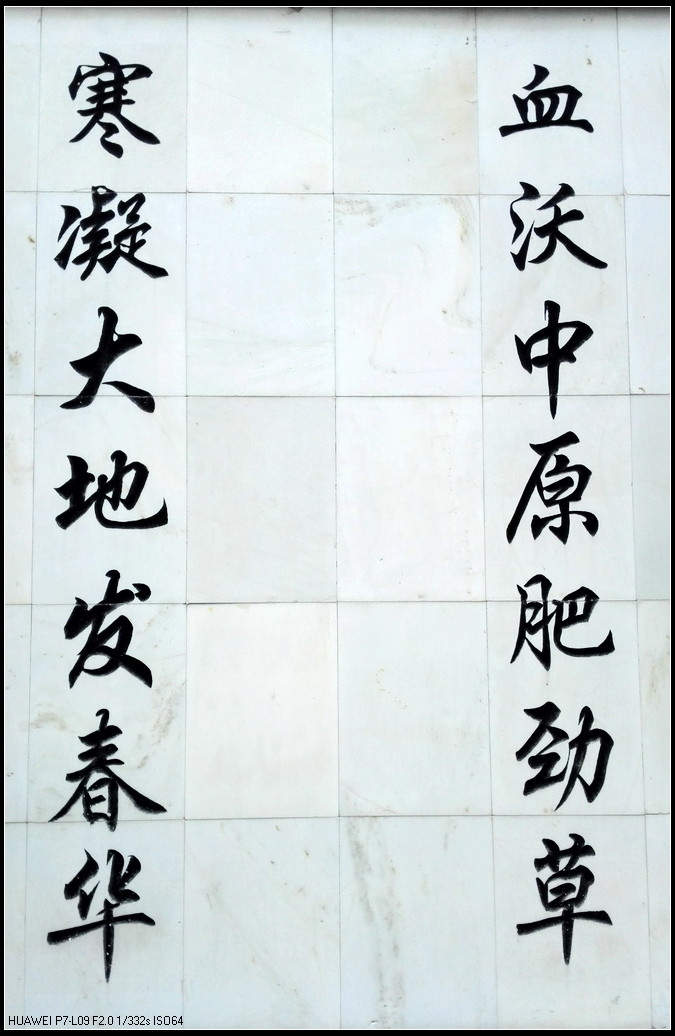 血沃中原肥劲草
寒凝大地发春华
HUAWEI P7-L09 F2.0 1/332s ISO64